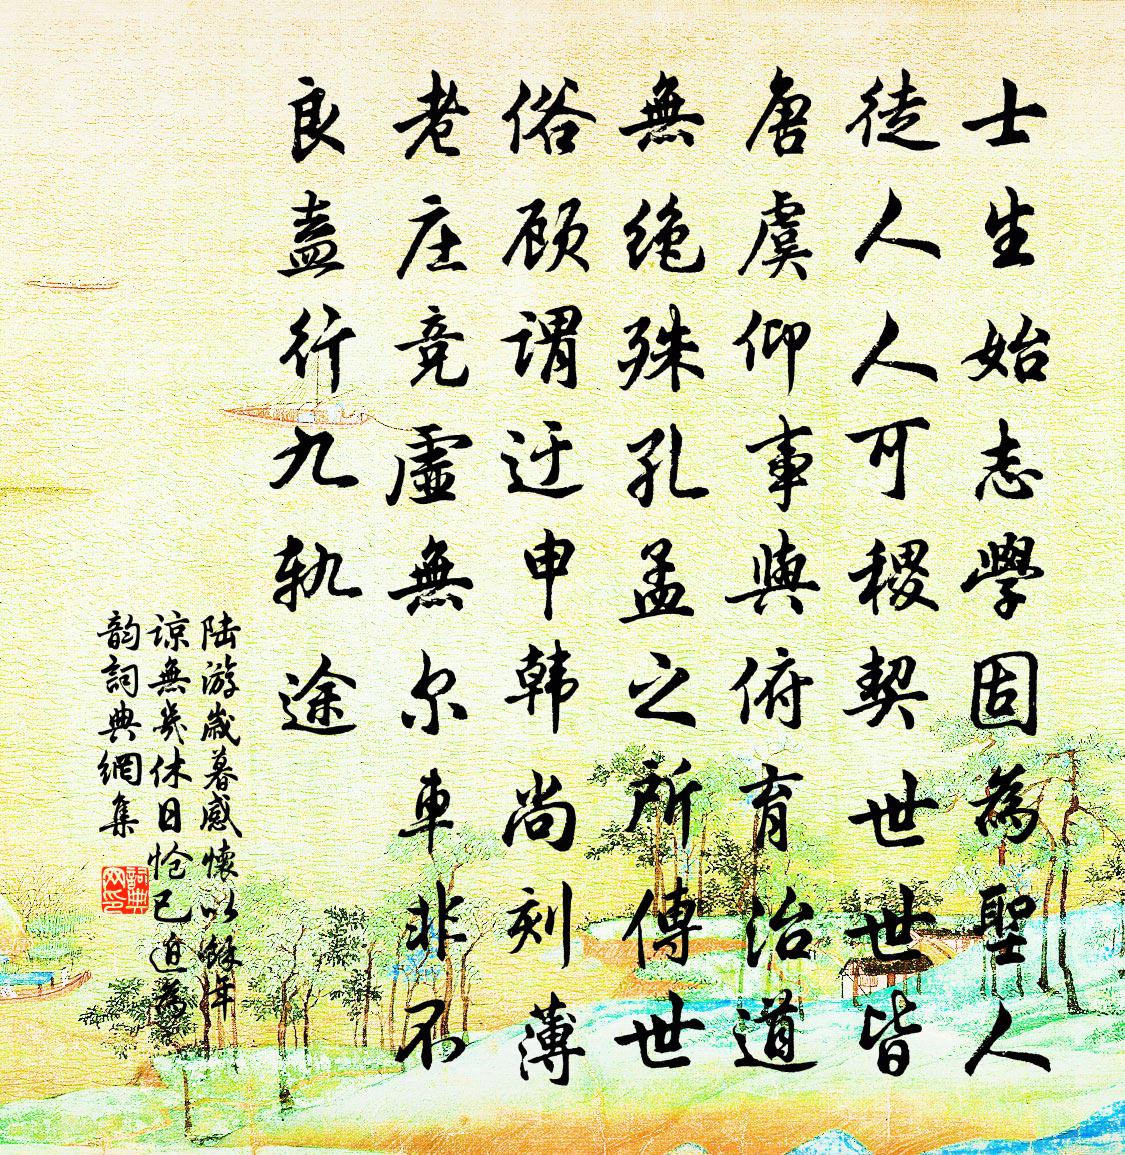 士生始志學固為聖人
徒人人可稷契世世皆
唐虞仰事與俯育治道
無绝殊孔孟之所傳世
俗顾谓迂申韩尚刻薄
老庄竞虛無尔車非不
良盍行九轨途
陆游歲暮感懷以餘年
谅無幾休日怆已迫為
韵詞典網集
詞典网印